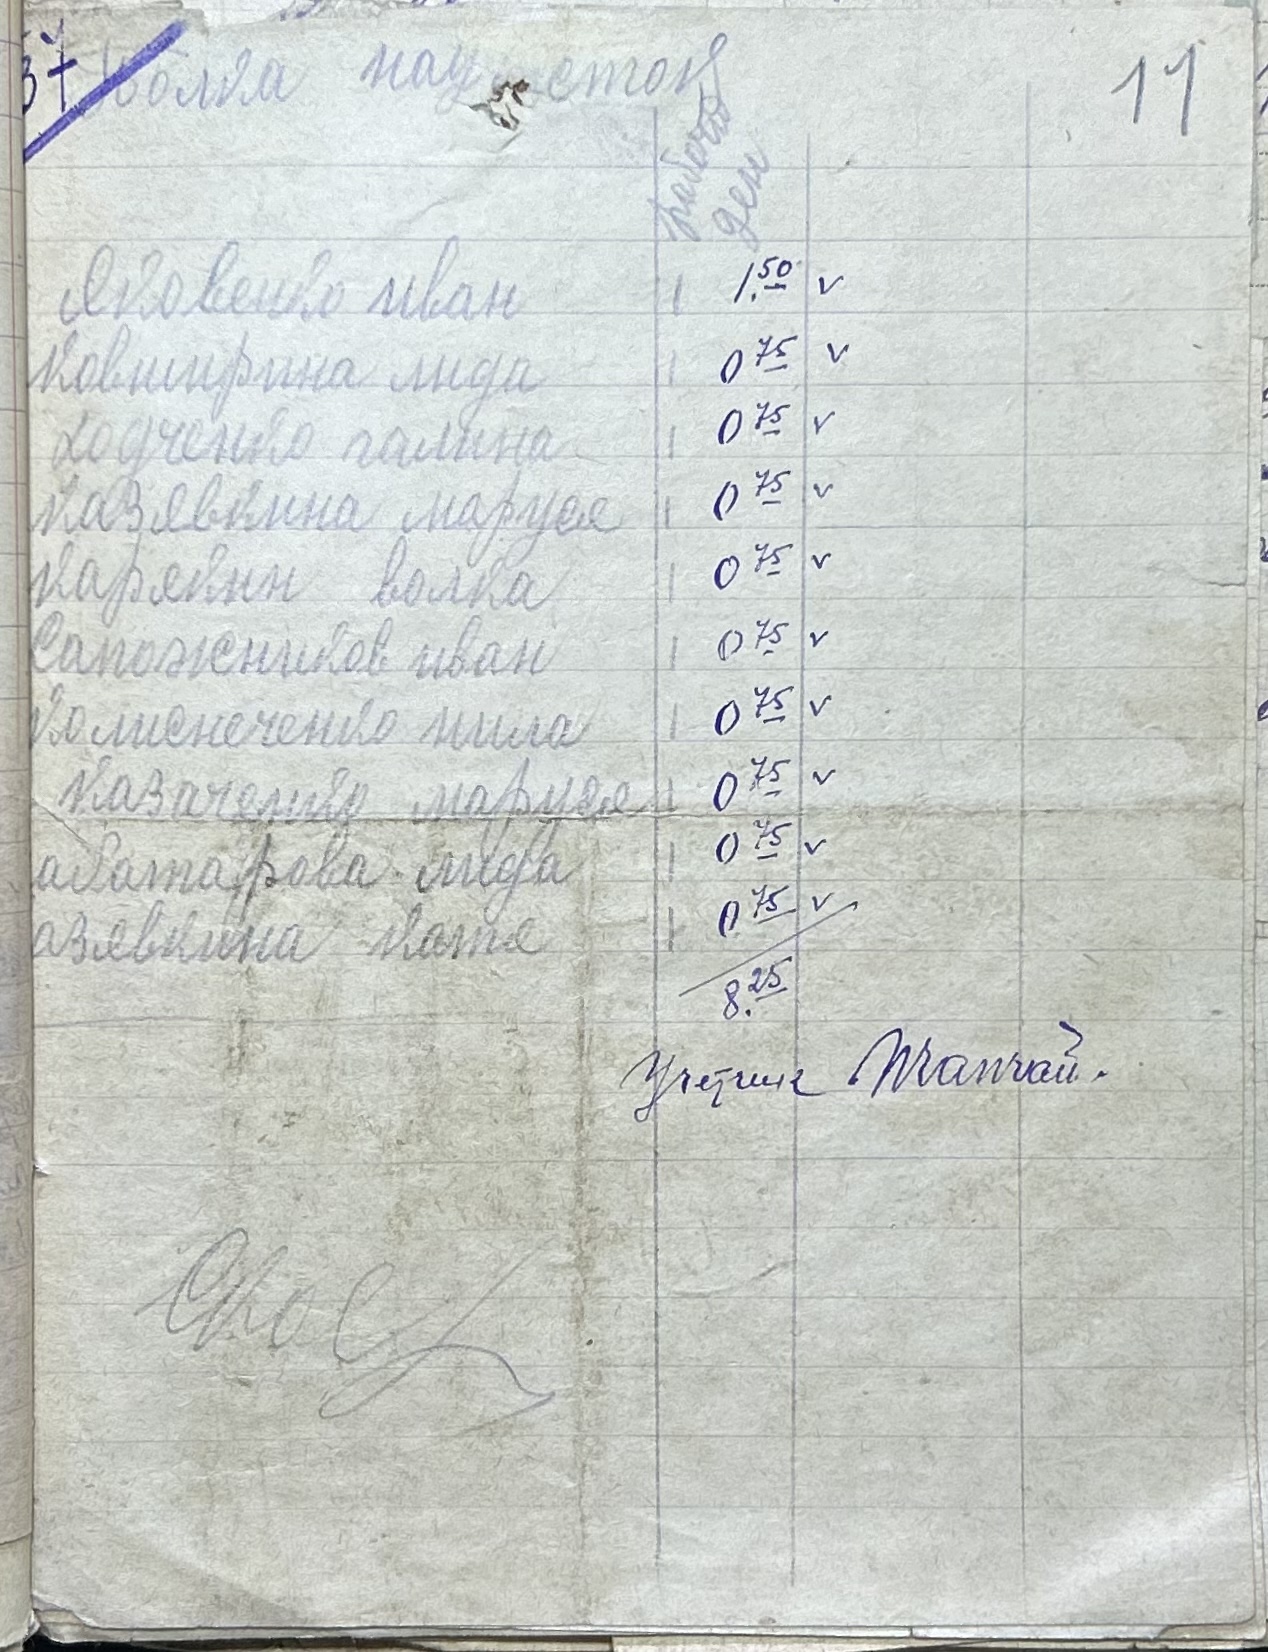 37 11
полка нау сток
рабочий
день
Яковенко иван 1 1.50 v
ковширина лида 1 0 75 v
ходченко галина 1 0 75 v
казявкина маруся 1 0 75 v
карякин волка 1 0 75 v
Сапожников иван 1 0 75 v
колиснеченко нила 1 0 75 v
казаченко маруся 1 0 75 v
абатарова лида 1 0 75 v
азявкина катя 1 0 75 v
8.25
Учетчик